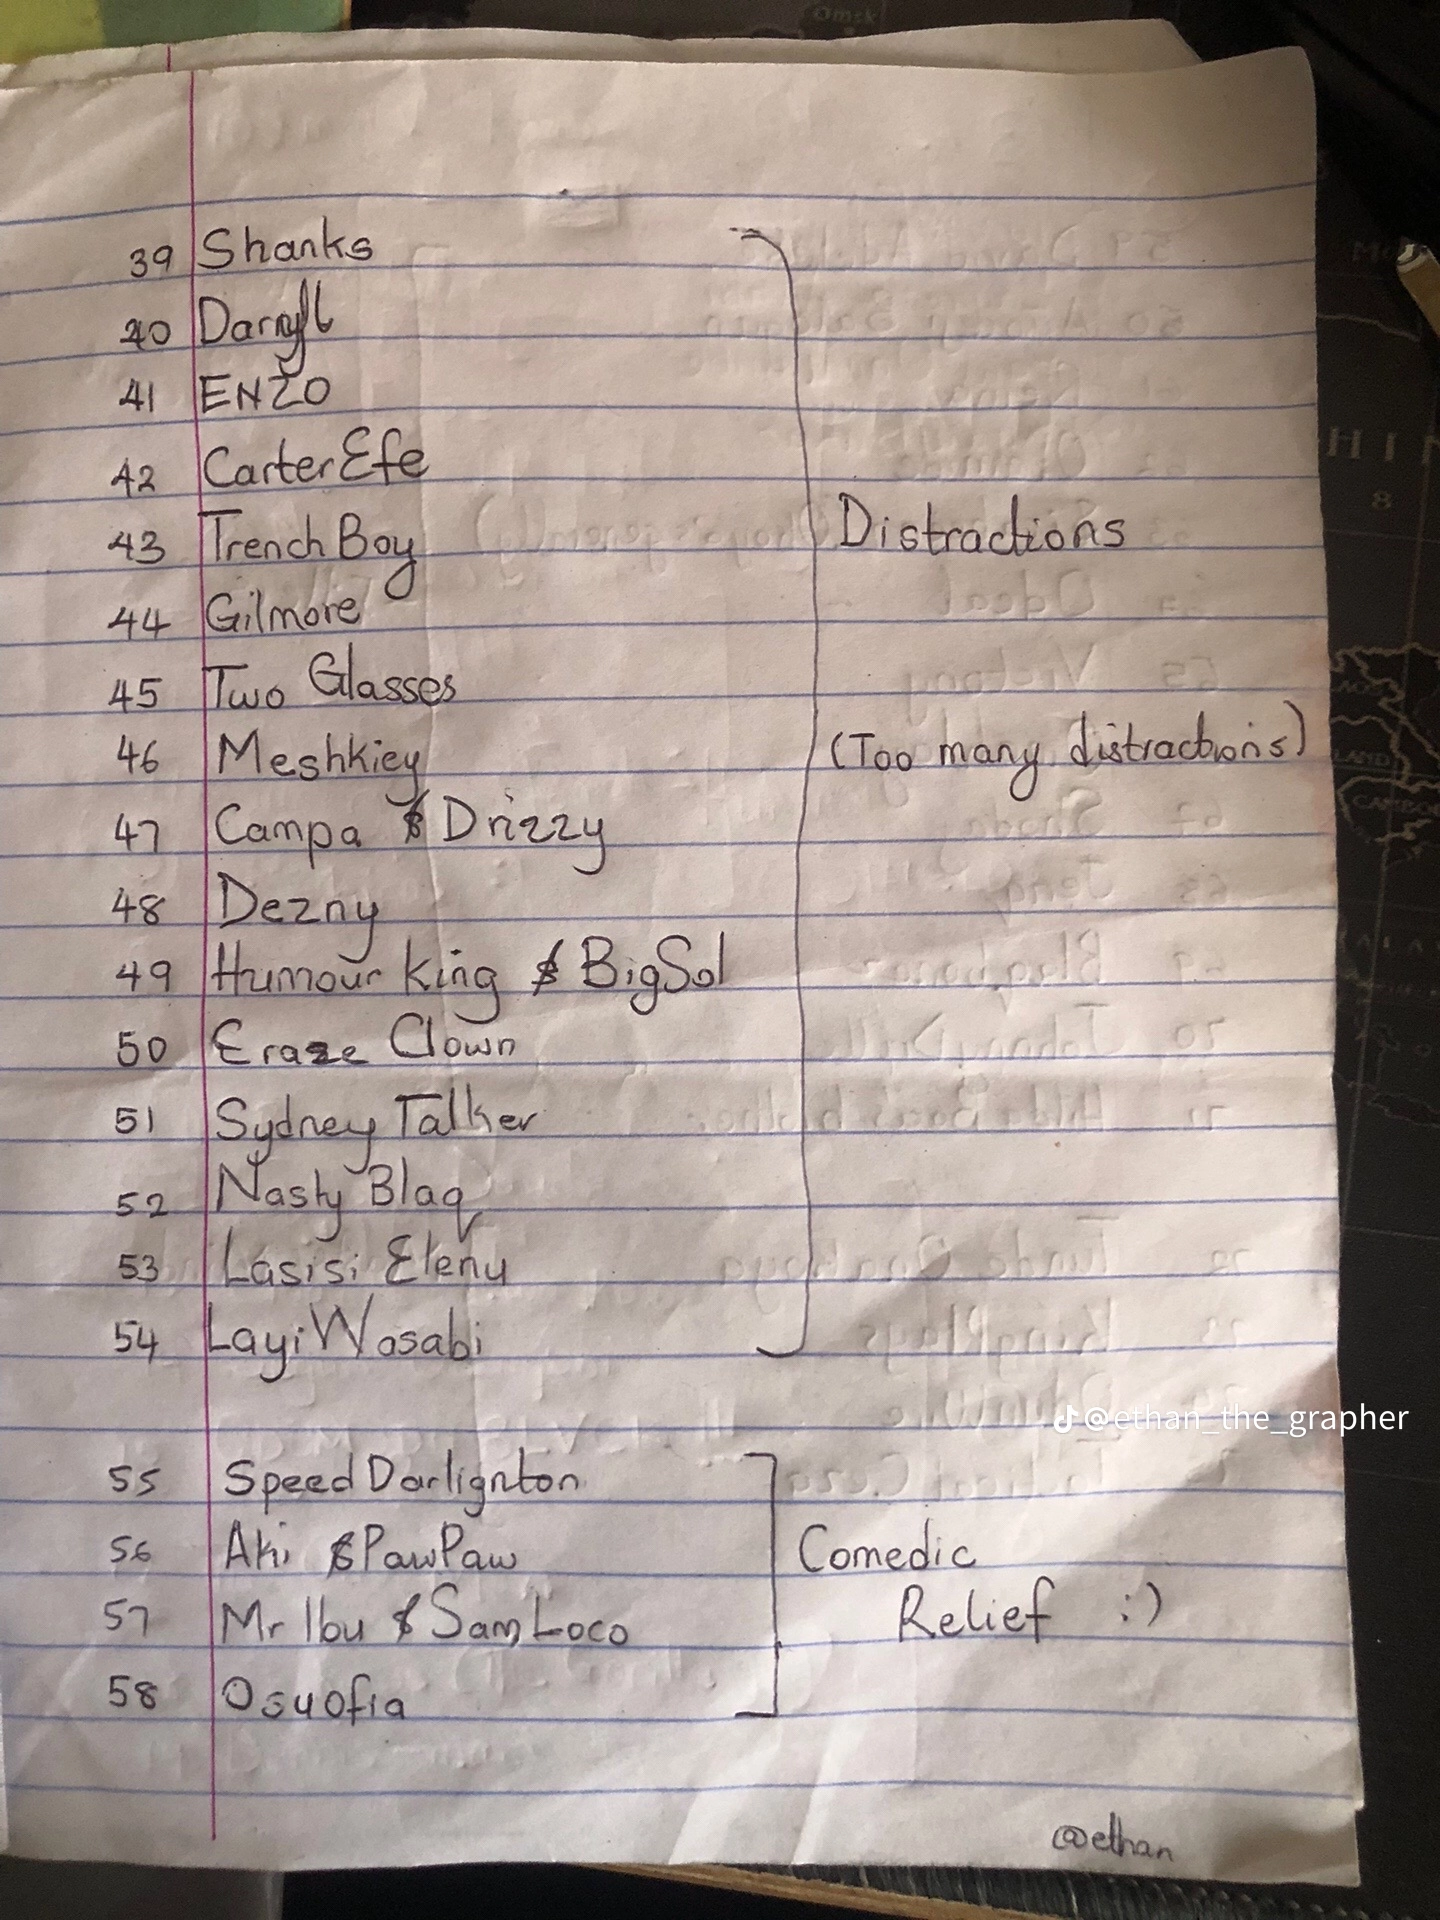 39 Shanks
40 Darryll
41 ENZO
42 CarterEfe
43 TrenchBoy
44 Gilmore
45 Two Glasses
46 Meshkiey
47 Campa & Drizzy
48 Dezny
49 Humour king & BigSol
50 Eraze Clown
51 Sydney Talker
52 Nasty Blaq
53 Lasisi Elenu
54 Layi Wasabi
Distractions
(Too many distractions)
55 Speed Darlignton
56 Aki & PawPaw
57 Mr Ibu & Sam Loco
58 Osuofia
Comedic
Relief :)
@ethan_the_grapher
@ethan
Omsk